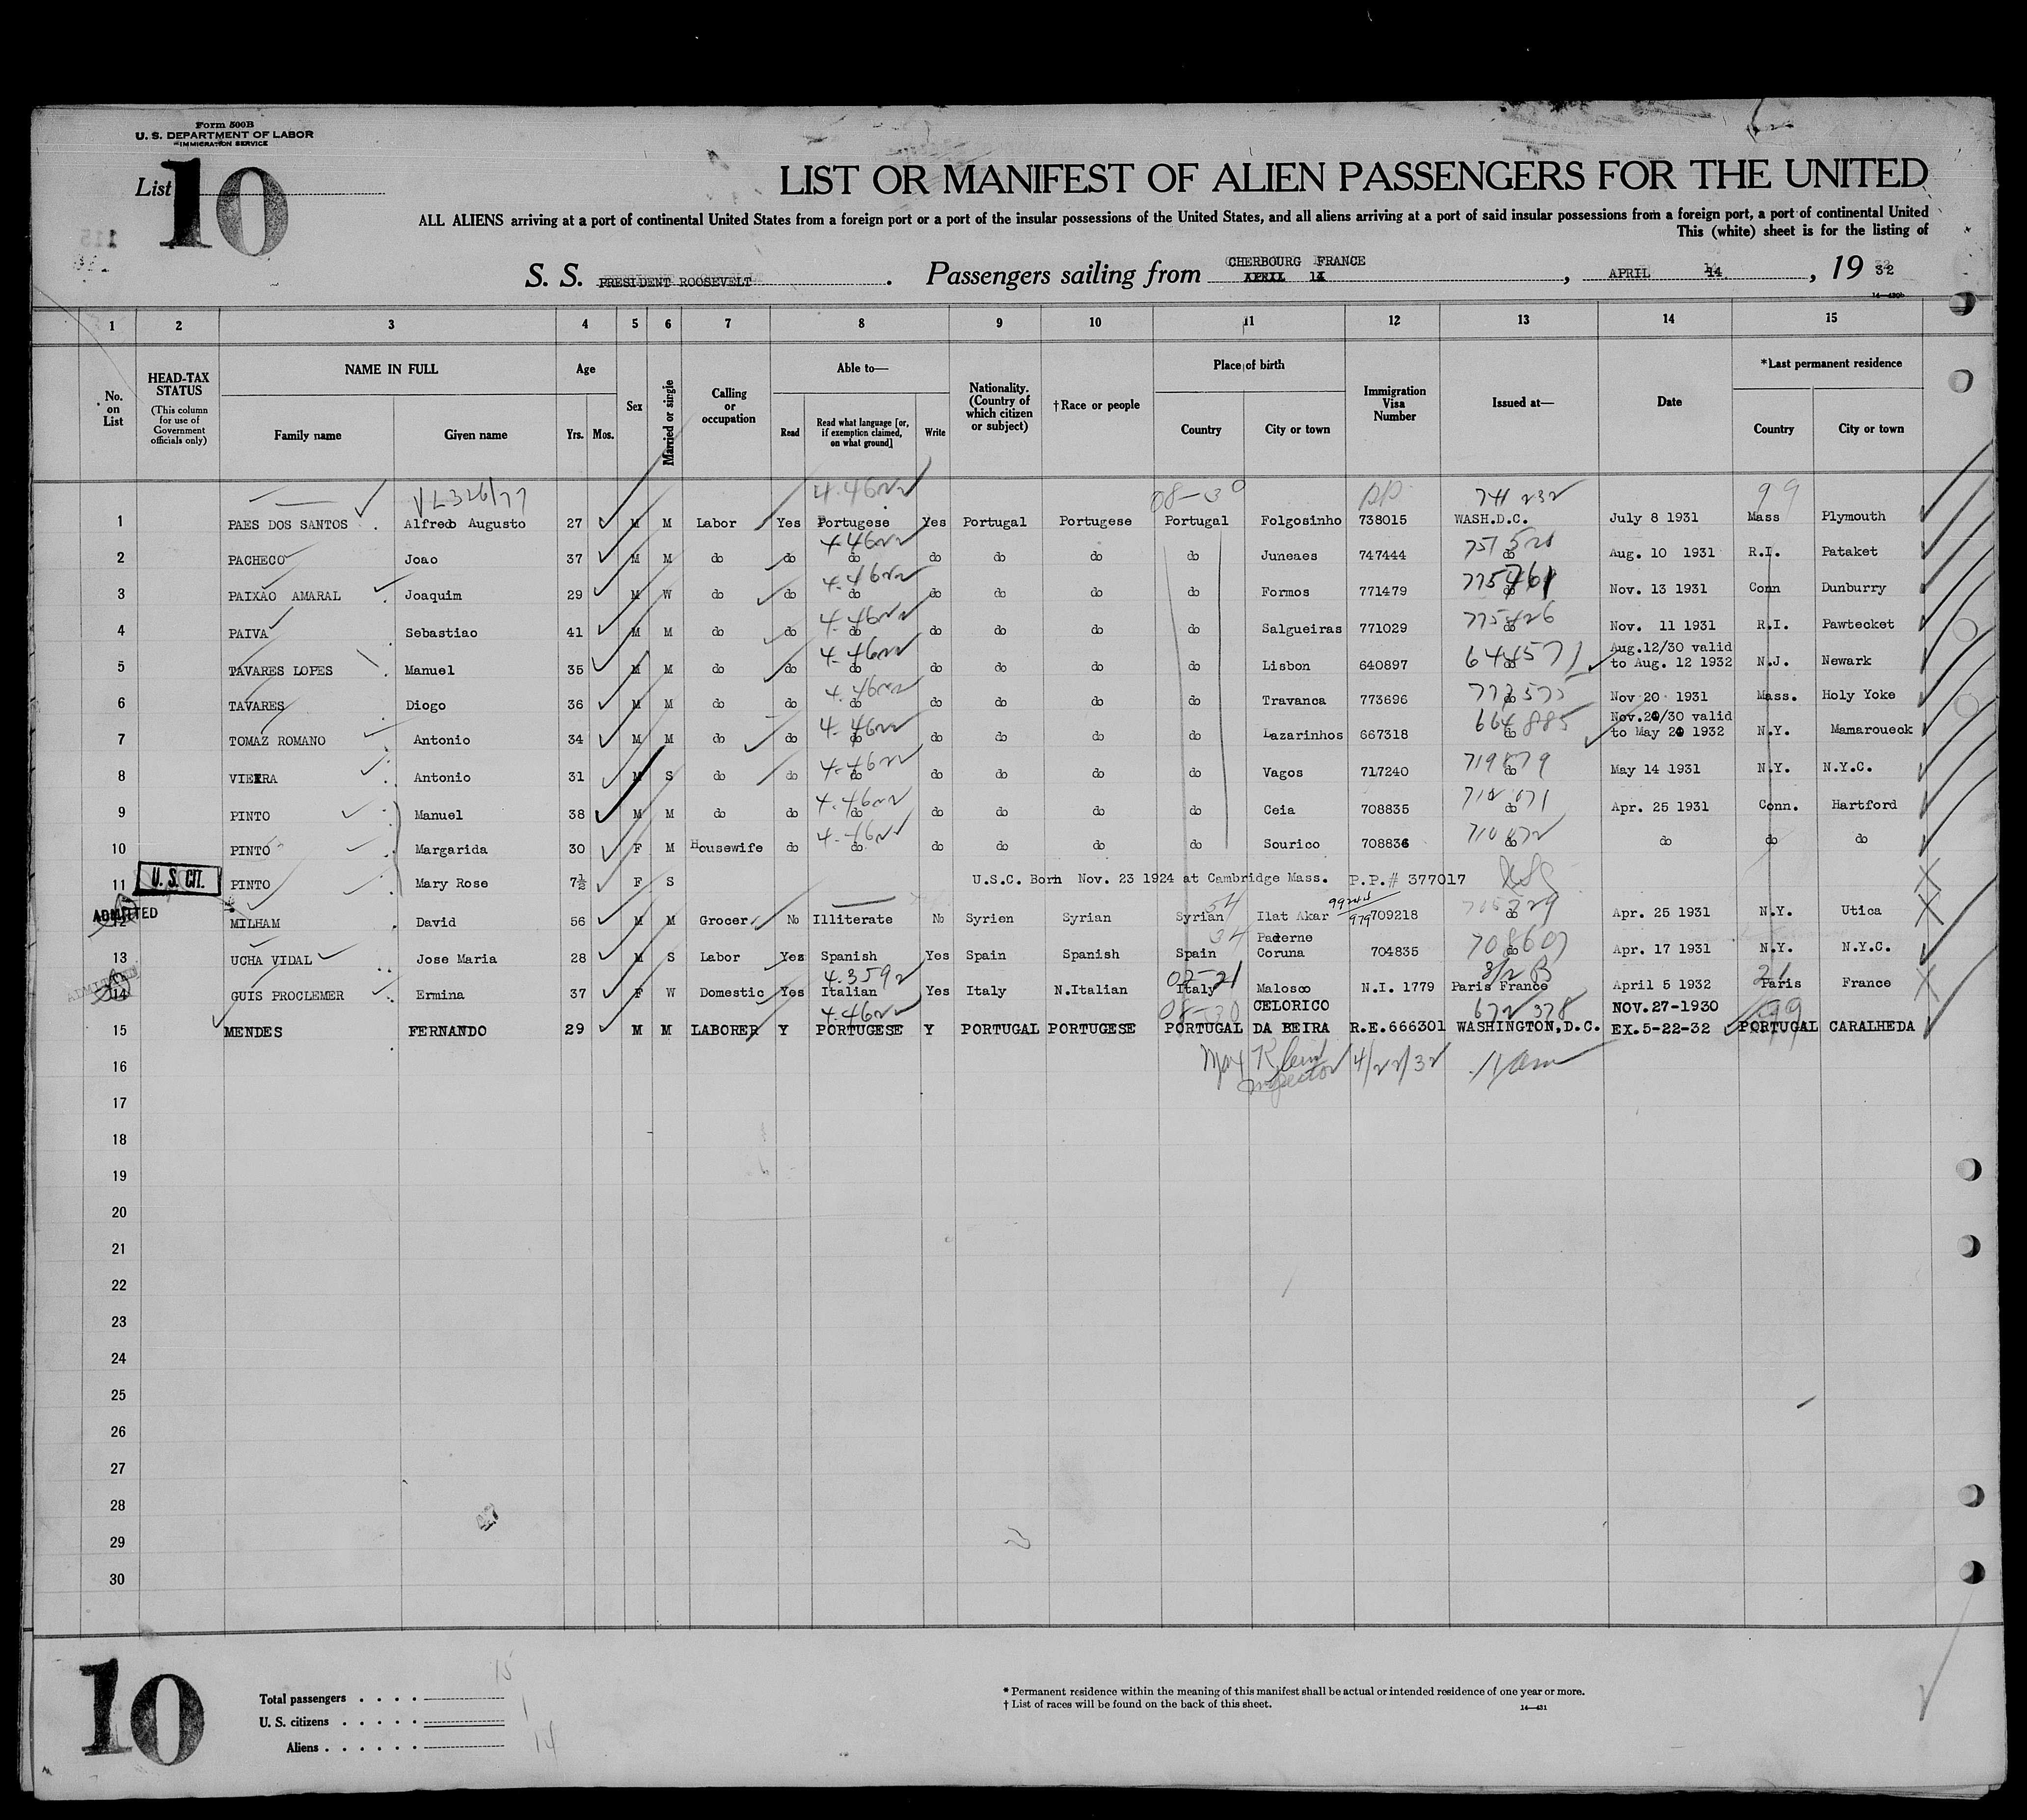 Form 500B
U. S. DEPARTMENT OF LABOR
IMMIGRATION SERVICE
List 10
LIST OR MANIFEST OF ALIEN PASSENGERS FOR THE UNITED
ALL ALIENS arriving at a port of continental United States from a foreign port or a port of the insular possessions of the United States, and all aliens arriving at a port of said insular possessions from a foreign port, a port of continental United
This (white) sheet is for the listing of
S. S. PRESIDENT ROOSEVELT. Passengers sailing from CHERBOURG FRANCE, APRIL 14, 1932
14—430b
1 2 3 4 5 6 7 8 9 10 11 12 13 14 15
No. on List
HEAD-TAX STATUS
(This column for use of Government officials only)
NAME IN FULL
Family name Given name
Age
Yrs. Mos.
Sex
Married or single
Calling or occupation
Able to—
Read Read what language [or, if exemption claimed, on what ground] Write
Nationality. (Country of which citizen or subject)
†Race or people
Place of birth
Country City or town
Immigration Visa Number
Issued at—
Date
*Last permanent residence
Country City or town
08-30 99
1 PAES DOS SANTOS Alfredo Augusto 27 M M Labor Yes Portugese Yes Portugal Portugese Portugal Folgosinho 738015 WASH.D.C. July 8 1931 Mass Plymouth
2 PACHECO Joao 37 M M do do do do do do do Juneaes 747444 do Aug. 10 1931 R.I. Pataket
3 PAIXAO AMARAL Joaquim 29 M W do do do do do do do Formos 771479 do Nov. 13 1931 Conn Dunburry
4 PAIVA Sebastiao 41 M M do do do do do do do Salgueiras 771029 do Nov. 11 1931 R.I. Pawtecket
5 TAVARES LOPES Manuel 35 M M do do do do do do do Lisbon 640897 644571 do Aug.12/30 valid to Aug. 12 1932 N.J. Newark
6 TAVARES Diogo 36 M M do do do do do do do Travanca 773696 do Nov 20 1931 Mass. Holy Yoke
7 TOMAZ ROMANO Antonio 34 M M do do do do do do do Lazarinhos 667318 664885 do Nov.20/30 valid to May 20 1932 N.Y. Mamaroueck
8 VIEIRA Antonio 31 M S do do do do do do do Vagos 717240 do May 14 1931 N.Y. N.Y.C.
9 PINTO Manuel 38 M M do do do do do do do Ceia 708835 do Apr. 25 1931 Conn. Hartford
10 PINTO Margarida 30 F M Housewife do do do do do do Sourico 708836 do do do do
11 U. S. CIT. PINTO Mary Rose 7½ F S U.S.C. Born Nov. 23 1924 at Cambridge Mass. P.P.# 377017
ADMITTED
12 MILHAM David 56 M M Grocer No Illiterate No Syrien Syrian Syrian Ilat Akar 709218 do Apr. 25 1931 N.Y. Utica
13 UCHA VIDAL Jose Maria 28 M S Labor Yes Spanish Yes Spain Spanish Spain Paderne Coruna 704835 do Apr. 17 1931 N.Y. N.Y.C.
14 GUIS PROCLEMER Ermina 37 F W Domestic Yes Italian Yes Italy N.Italian Italy Malosco N.I. 1779 Paris France April 5 1932 Paris France
15 MENDES FERNANDO 29 M M LABORER Y PORTUGESE Y PORTUGAL PORTUGESE PORTUGAL CELORICO DA BEIRA R.E.666301 672 378 WASHINGTON,D.C. NOV.27-1930 EX.5-22-32 PORTUGAL CARALHEDA
16 Max Klein Inspector 4/22/32
17
18
19
20
21
22
23
24
25
26
27
28
29
30
10
Total passengers . . . . 15
U. S. citizens . . . . . 1
Aliens . . . . . . 14
* Permanent residence within the meaning of this manifest shall be actual or intended residence of one year or more.
† List of races will be found on the back of this sheet.
14—431